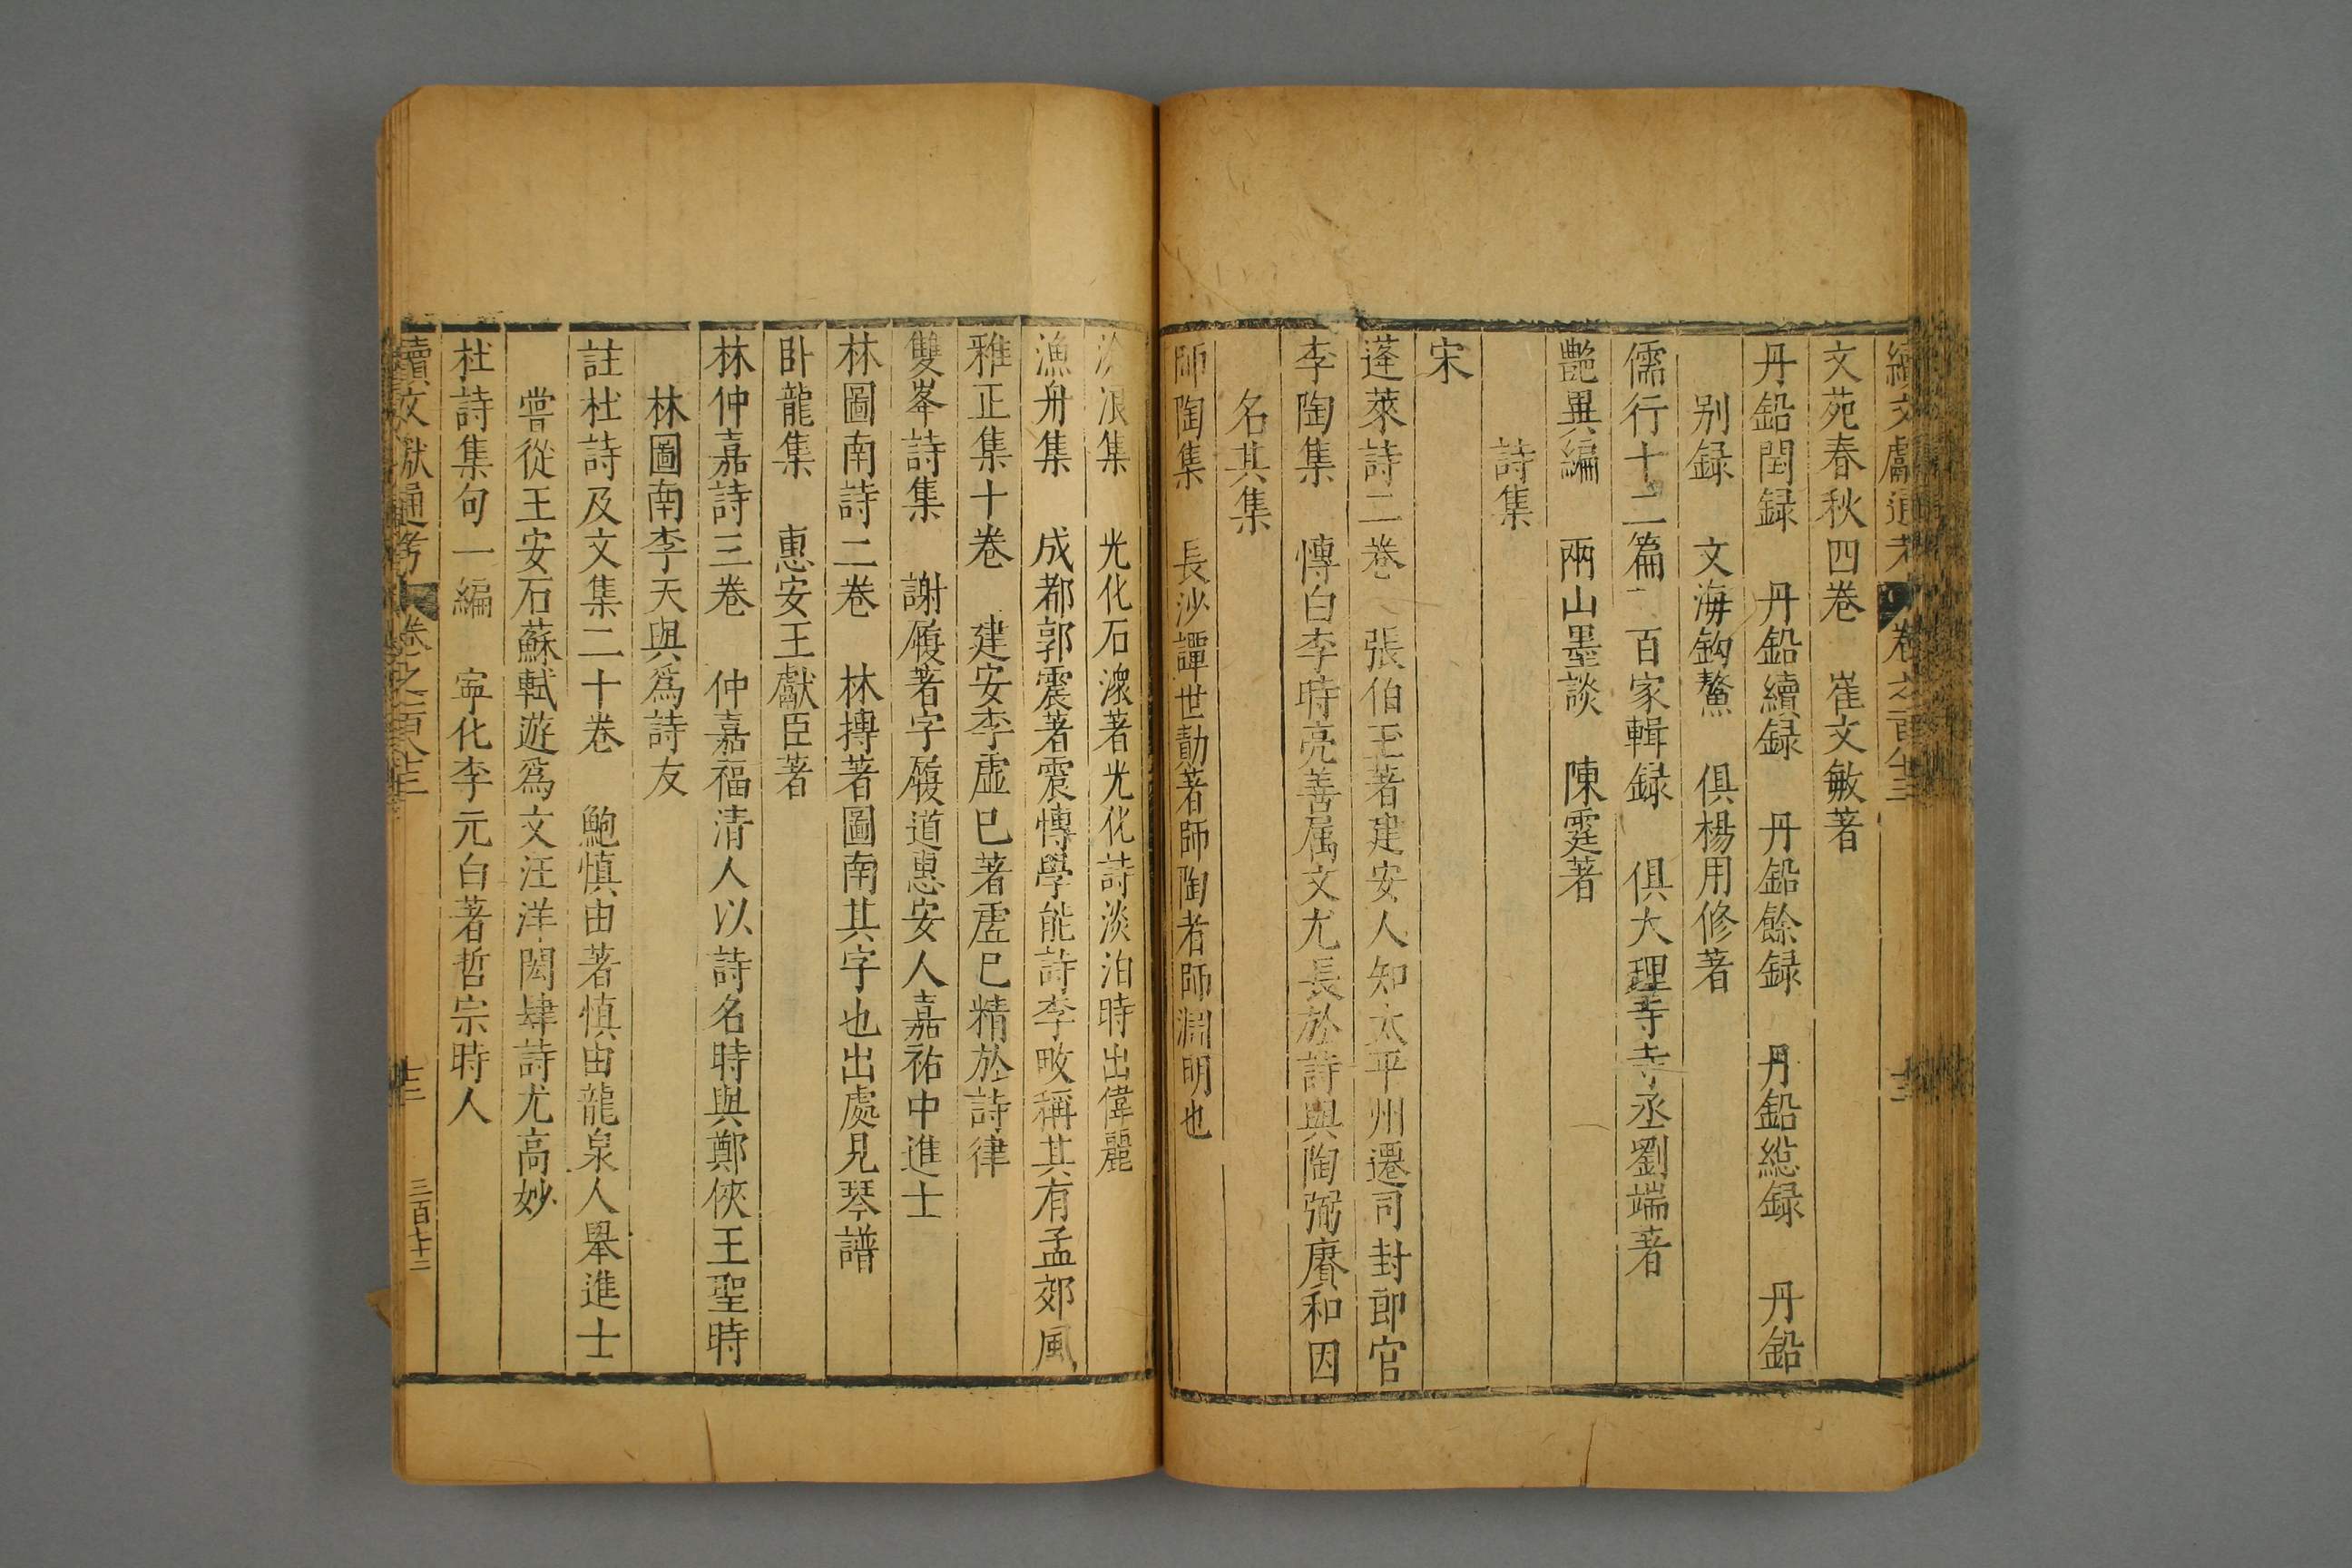 續文獻通考 卷之一百八十三 十三
文苑春秋四卷 崔文敏著
丹鉛閏録 丹鉛續録 丹鉛餘録 丹鉛総録 丹鉛
别録 文海鈎鰲 俱楊用修著
儒行十二篇 百家輯録 俱大理寺寺丞劉端著
艷異編 兩山墨談 陳霆著
詩集
宋
蓬萊詩二卷 張伯玉著建安人知太平州遷司封郎官
李陶集 慱白李時亮善属文尤長於詩與陶弼賡和因
名其集
師陶集 長沙譚世勣著師陶者師淵明也
滄浪集 光化石㵯著光化詩淡泊時出偉麗
漁舟集 成都郭震著震慱學能詩李畋稱其有孟郊風
雅正集十卷 建安李虛巳著虛巳精於詩律
雙峯詩集 謝履著字履道惠安人嘉祐中進士
林圖南詩二卷 林摶著圖南其字也出處見琴譜
卧龍集 惠安王獻臣著
林仲嘉詩三卷 仲嘉福清人以詩名時與鄭俠王聖時
林圖南李天與爲詩友
註杜詩及文集二十卷 鮑慎由著慎由龍泉人舉進士
嘗從王安石蘇軾遊爲文汪洋閎肆詩尤高妙
杜詩集句一編 寧化李元白著哲宗時人
續文獻通考 卷之一百八十三 十三 三百七十二